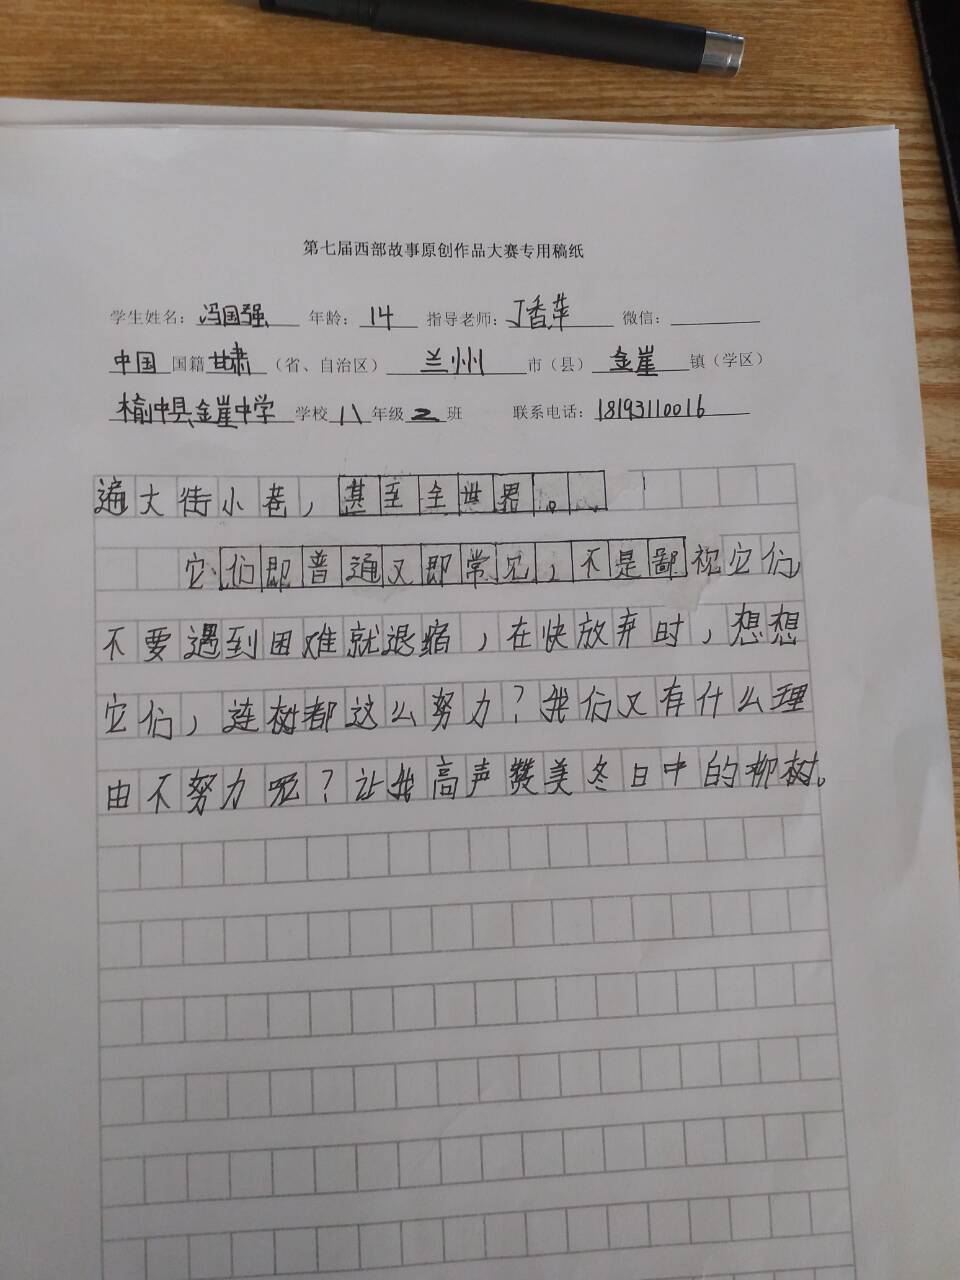 第七届西部故事原创作品大赛专用稿纸
学生姓名：冯国强 年龄：14 指导老师：丁香萍 微信：
中国 国籍 甘肃（省、自治区） 兰州 市（县） 金崖 镇（学区）
榆中县金崖中学 学校 八 年级 二 班 联系电话：18193110016
遍大街小巷，甚至全世界。
它们即普通又即常见，不是鄙视它们
不要遇到困难就退缩，在快放弃时，想想
它们，连树都这么努力？我们又有什么理
由不努力呢？让我高声赞美冬日中的柳树。